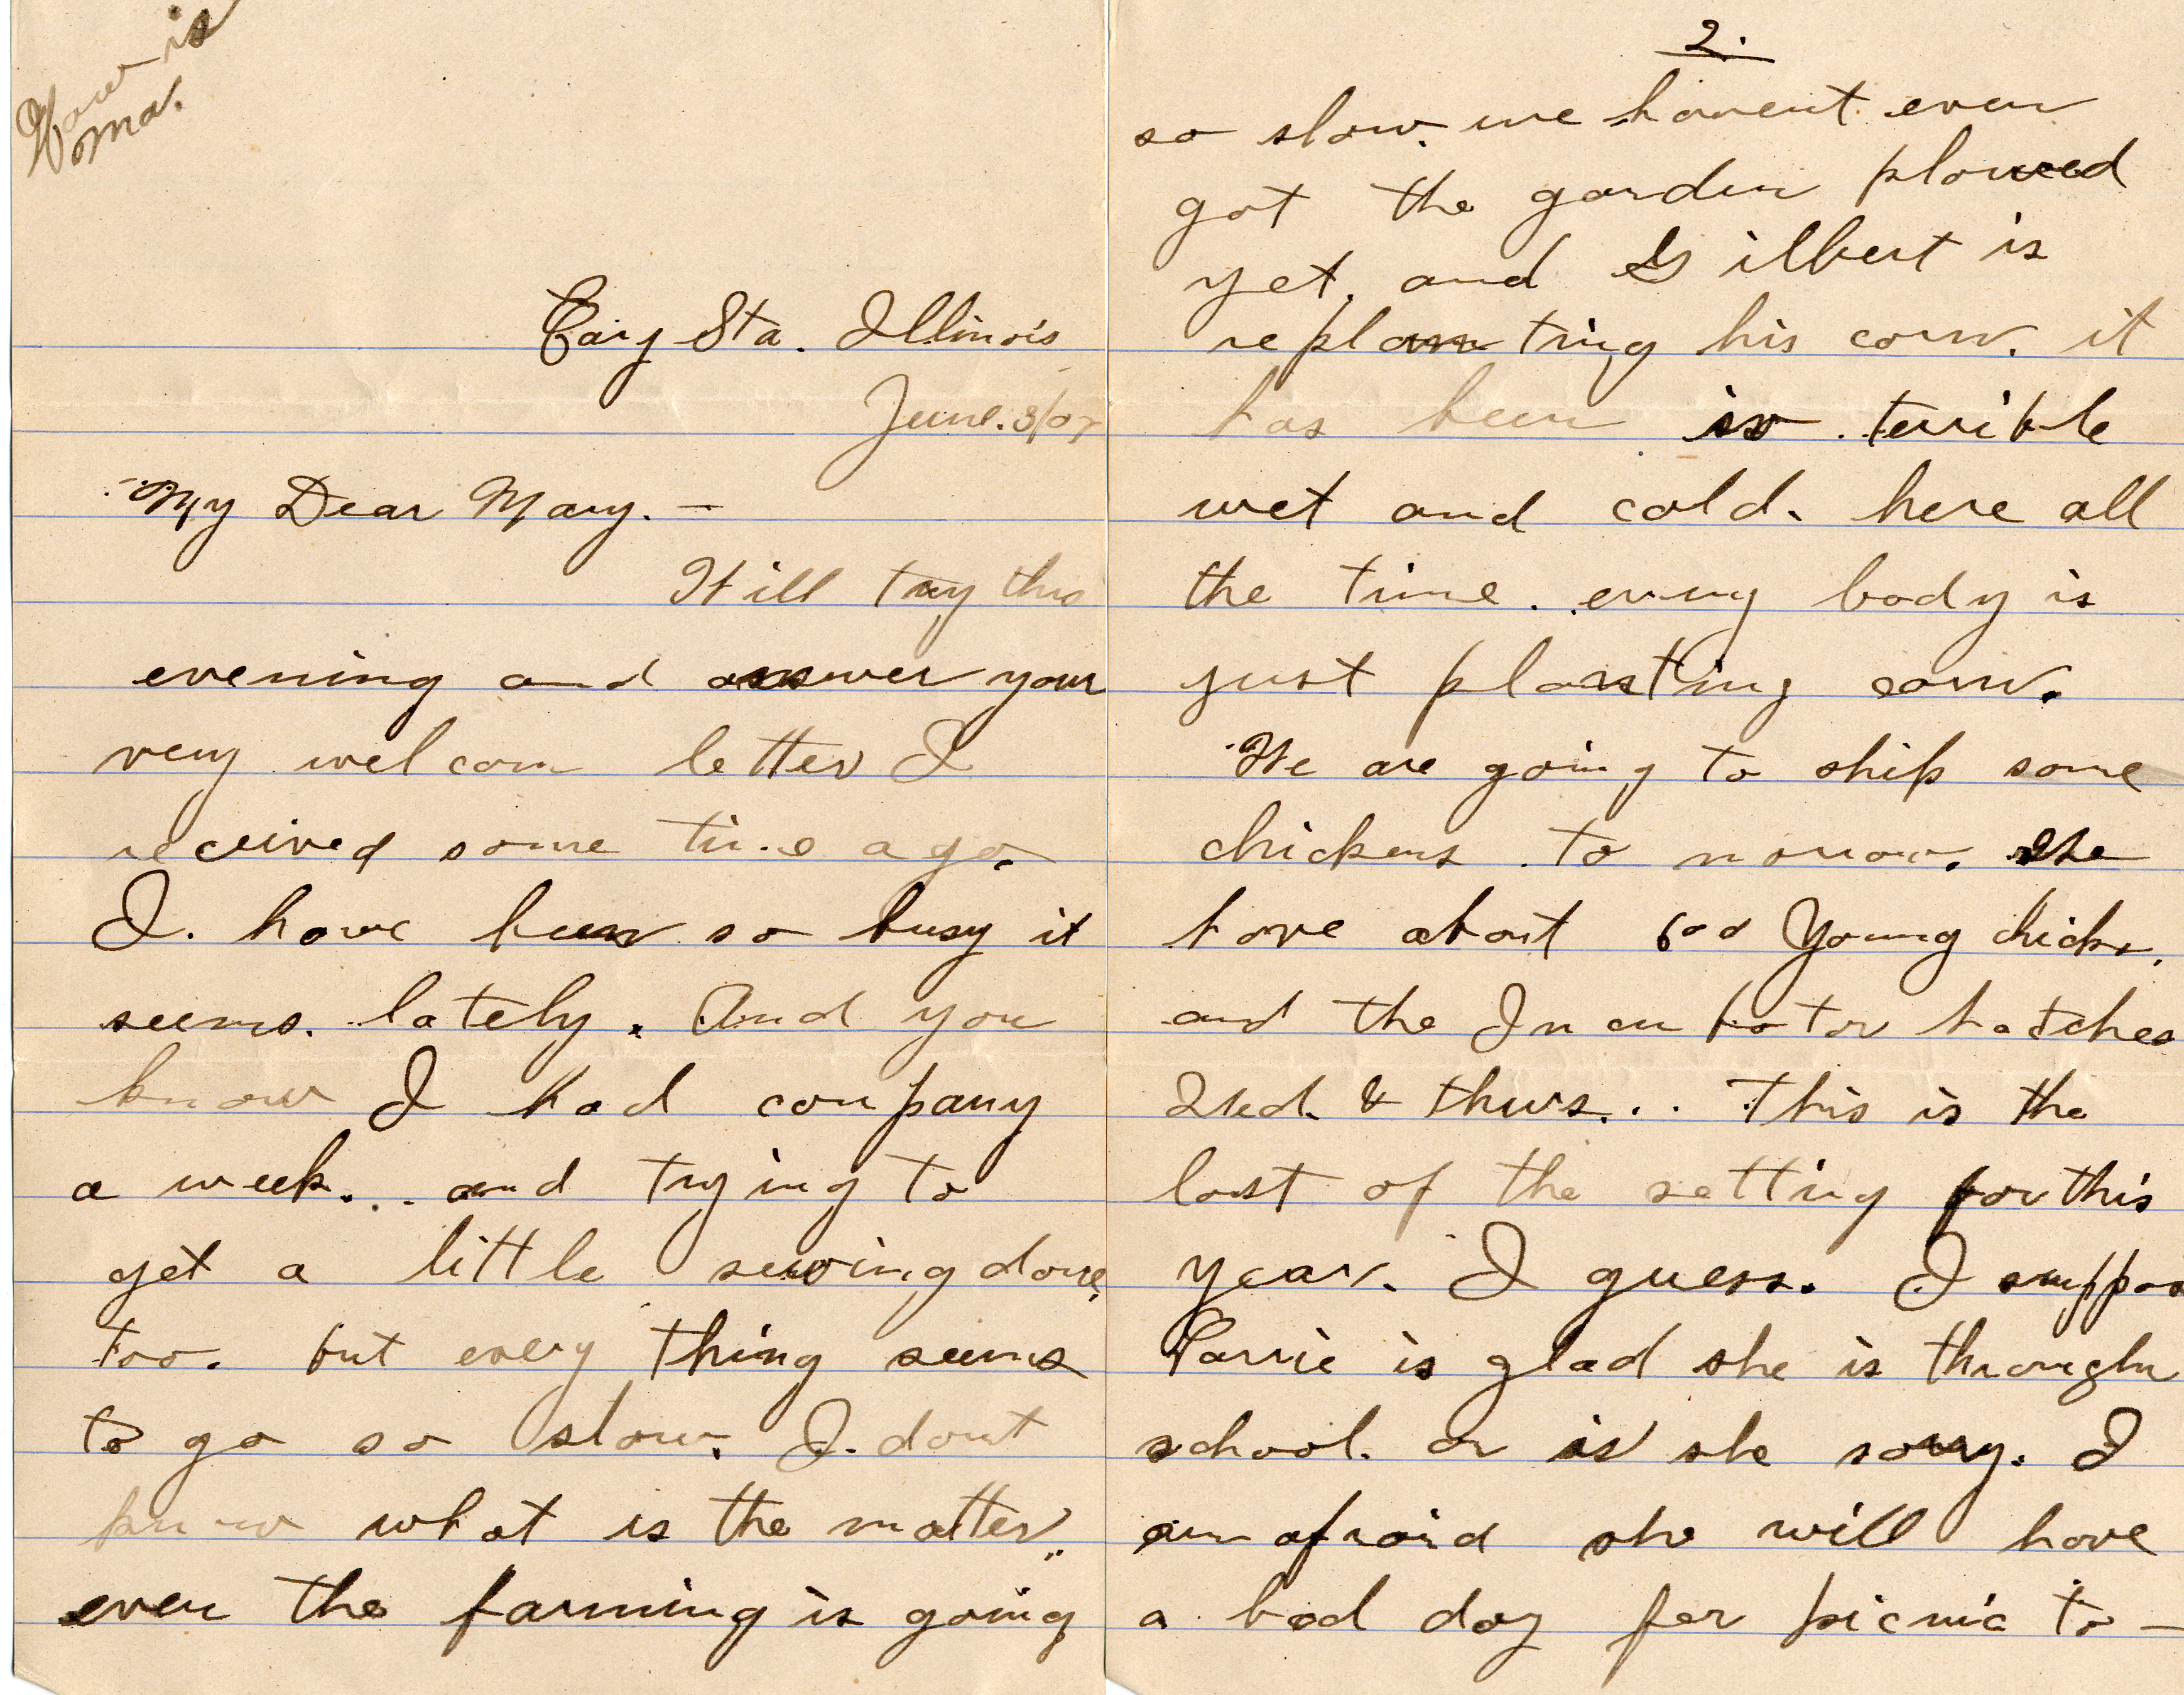 How is
ma.
Cary Sta. Illinois
June. 3/07
My Dear Mary. —
Will try this
evening and answer your
very wel com letter I
received some time ago.
I. have been so busy it
seems. lately. And you
know I had company
a week. . and trying to
get a little sewing done,
too. but every thing seems
to go so slow. I. dont
know what is the matter.
even the farming is going
2.
so slow. we havent even
got the garden plowed
yet. and Gilbert is
replanting his corn. it
has been so terrible
wet and cold. here all
the time. every body is
just planting corn.
We are going to ship some
chickens. to morrow. We
have about 600 Young chicks.
and the In cu ba tor hatches
Wed. & thurs. . . This is the
last of the setting for this
year. I guess. I suppos
Carrie is glad she is through
school. or is she sorry. I
am afraid she will have
a bad day for picnic to —